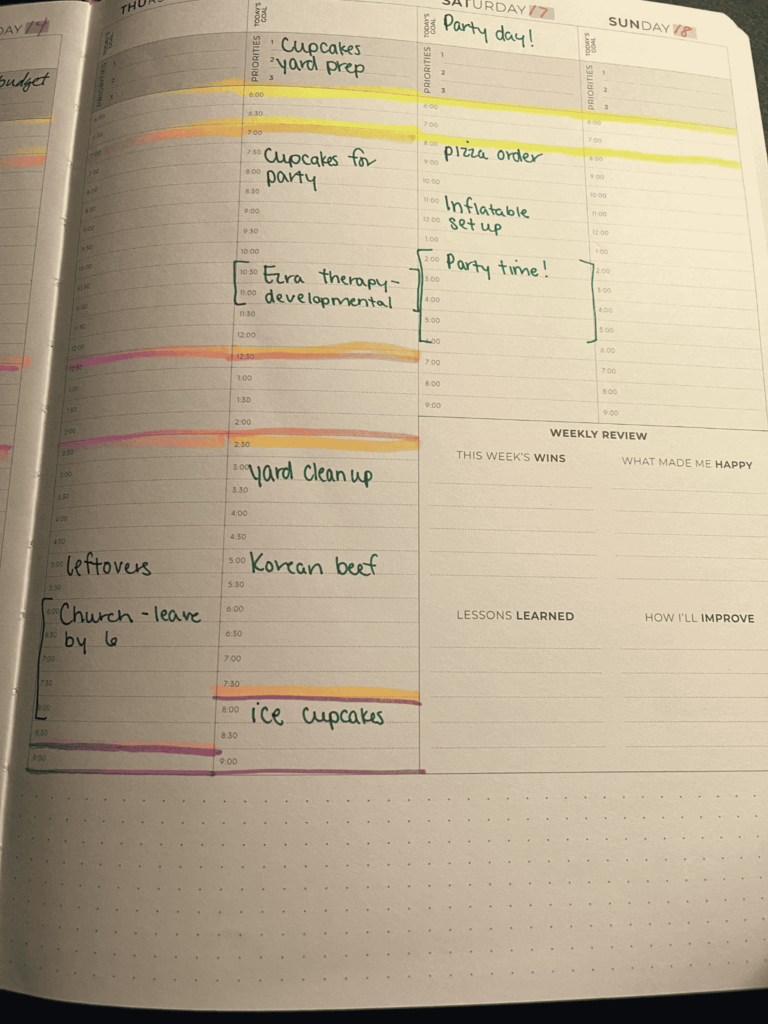 DAY 14
budget
THUR
TODAY'S GOAL
PRIORITIES
1
2
3
6:00
6:30
7:00
7:30
12:00
12:30
1:00
1:30
2:00
2:30
3:00
3:30
4:00
4:30
5:00
leftovers
5:30
6:00
Church - leave
6:30
by 6
7:00
7:30
8:00
8:30
9:00
TODAY'S GOAL
PRIORITIES
1 Cupcakes
2 yard prep
3
6:00
6:30
7:00
7:30
Cupcakes for
8:00
party
8:30
9:00
9:30
10:00
10:30
Ezra therapy-
11:00
developmental
11:30
12:00
12:30
1:00
1:30
2:00
2:30
3:00
yard clean up
3:30
4:00
4:30
5:00
Korean beef
5:30
6:00
6:30
7:00
7:30
8:00
ice cupcakes
8:30
9:00
SATURDAY 17
TODAY'S GOAL
Party day!
PRIORITIES
1
2
3
6:00
7:00
8:00
pizza order
9:00
10:00
11:00
Inflatable
12:00
set up
1:00
2:00
Party time!
3:00
4:00
5:00
6:00
7:00
8:00
9:00
SUNDAY 18
TODAY'S GOAL
PRIORITIES
1
2
3
6:00
7:00
8:00
9:00
10:00
11:00
12:00
1:00
2:00
3:00
4:00
5:00
6:00
7:00
8:00
9:00
WEEKLY REVIEW
THIS WEEK'S WINS
WHAT MADE ME HAPPY
LESSONS LEARNED
HOW I'LL IMPROVE